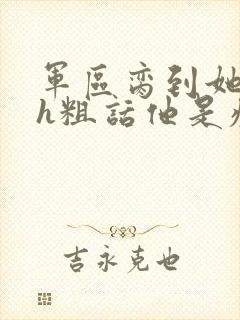 軍區脔到她
h粗話他是
吉永克也